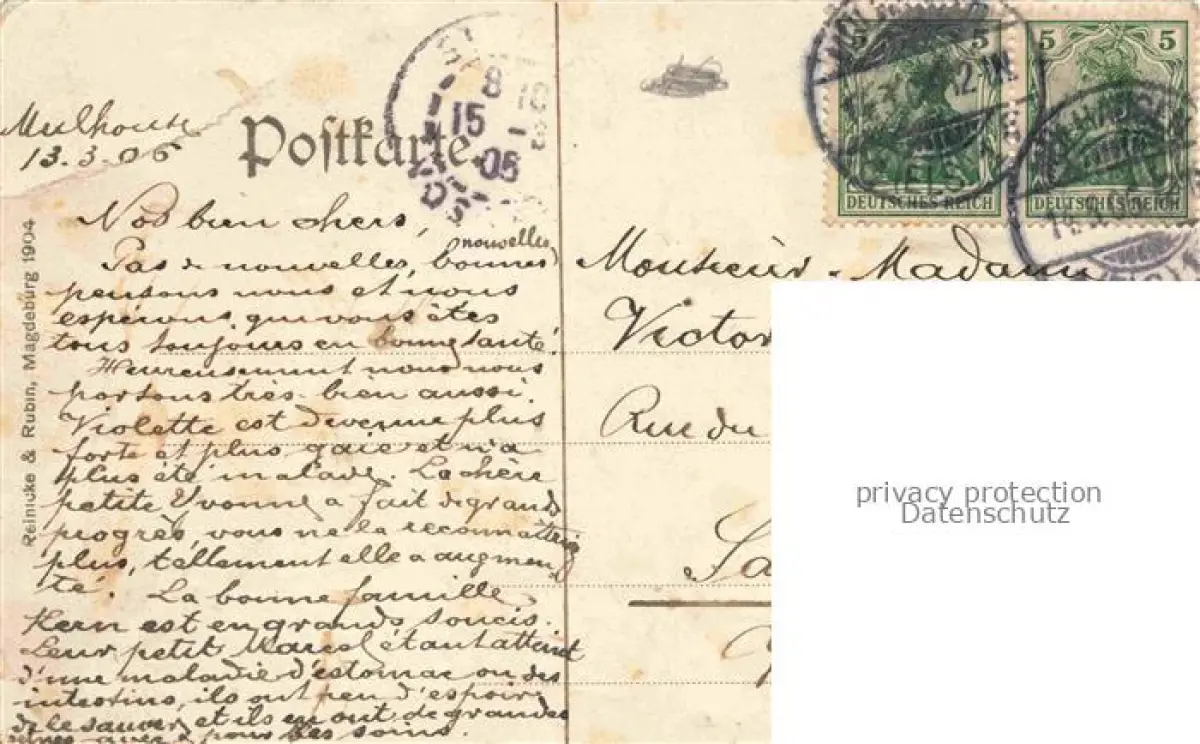 Mulhouse
13.3.06
Postkarte.
8
15
06
Nos bien chers,
nouvelles
Pas de nouvelles, bonnes
pensons nous et nous
espérons, que vous êtes
tous toujours en bonne santé.
Heureusement nous nous
portons très-bien aussi.
Violette est devenue plus
forte et plus gaie et n'a
plus été malade. La chère
petite Yvonne a fait de grands
progrès, vous ne la reconnaîtriez
plus, tellement elle a augmen-
té. La bonne famille
Kern est en grands soucis.
Leur petit Marcel étant atteint
d'une maladie d'estomac ou des
intestins, ils ont peu d'espoir
de le sauver et ils en ont de grandes
avec pour les soins.
Reinicke & Rubin, Magdeburg 1904
5 5
DEUTSCHES REICH
5 5
DEUTSCHES REICH
Monsieur & Madame
Victor
Rue du
Sa
privacy protection
Datenschutz